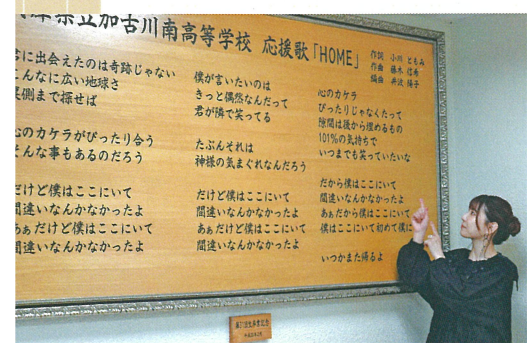 兵庫県立加古川南高等学校 応援歌「HOME」
作詞 小川 ともみ
作曲 藤木 信秀
編曲 井波 陽子
君に出会えたのは奇跡じゃない
こんなに広い地球さ
裏側まで探せば
心のカケラがぴったり合う
そんな事もあるのだろう
だけど僕はここにいて
間違いなんかなかったよ
あぁだけど僕はここにいて
間違いなんかなかったよ
僕が言いたいのは
きっと偶然なんだって
君が隣で笑ってる
たぶんそれは
神様の気まぐれなんだろう
だけど僕はここにいて
間違いなんかなかったよ
あぁだけど僕はここにいて
間違いなんかなかったよ
心のカケラ
ぴったりじゃなくたって
隙間は後から埋めるもの
101%の気持ちで
いつまでも笑っていたいな
だから僕はここにいて
間違いなんかなかったよ
あぁだから僕はここにいて
僕はここにいて初めて僕に
いつかまた帰るよ